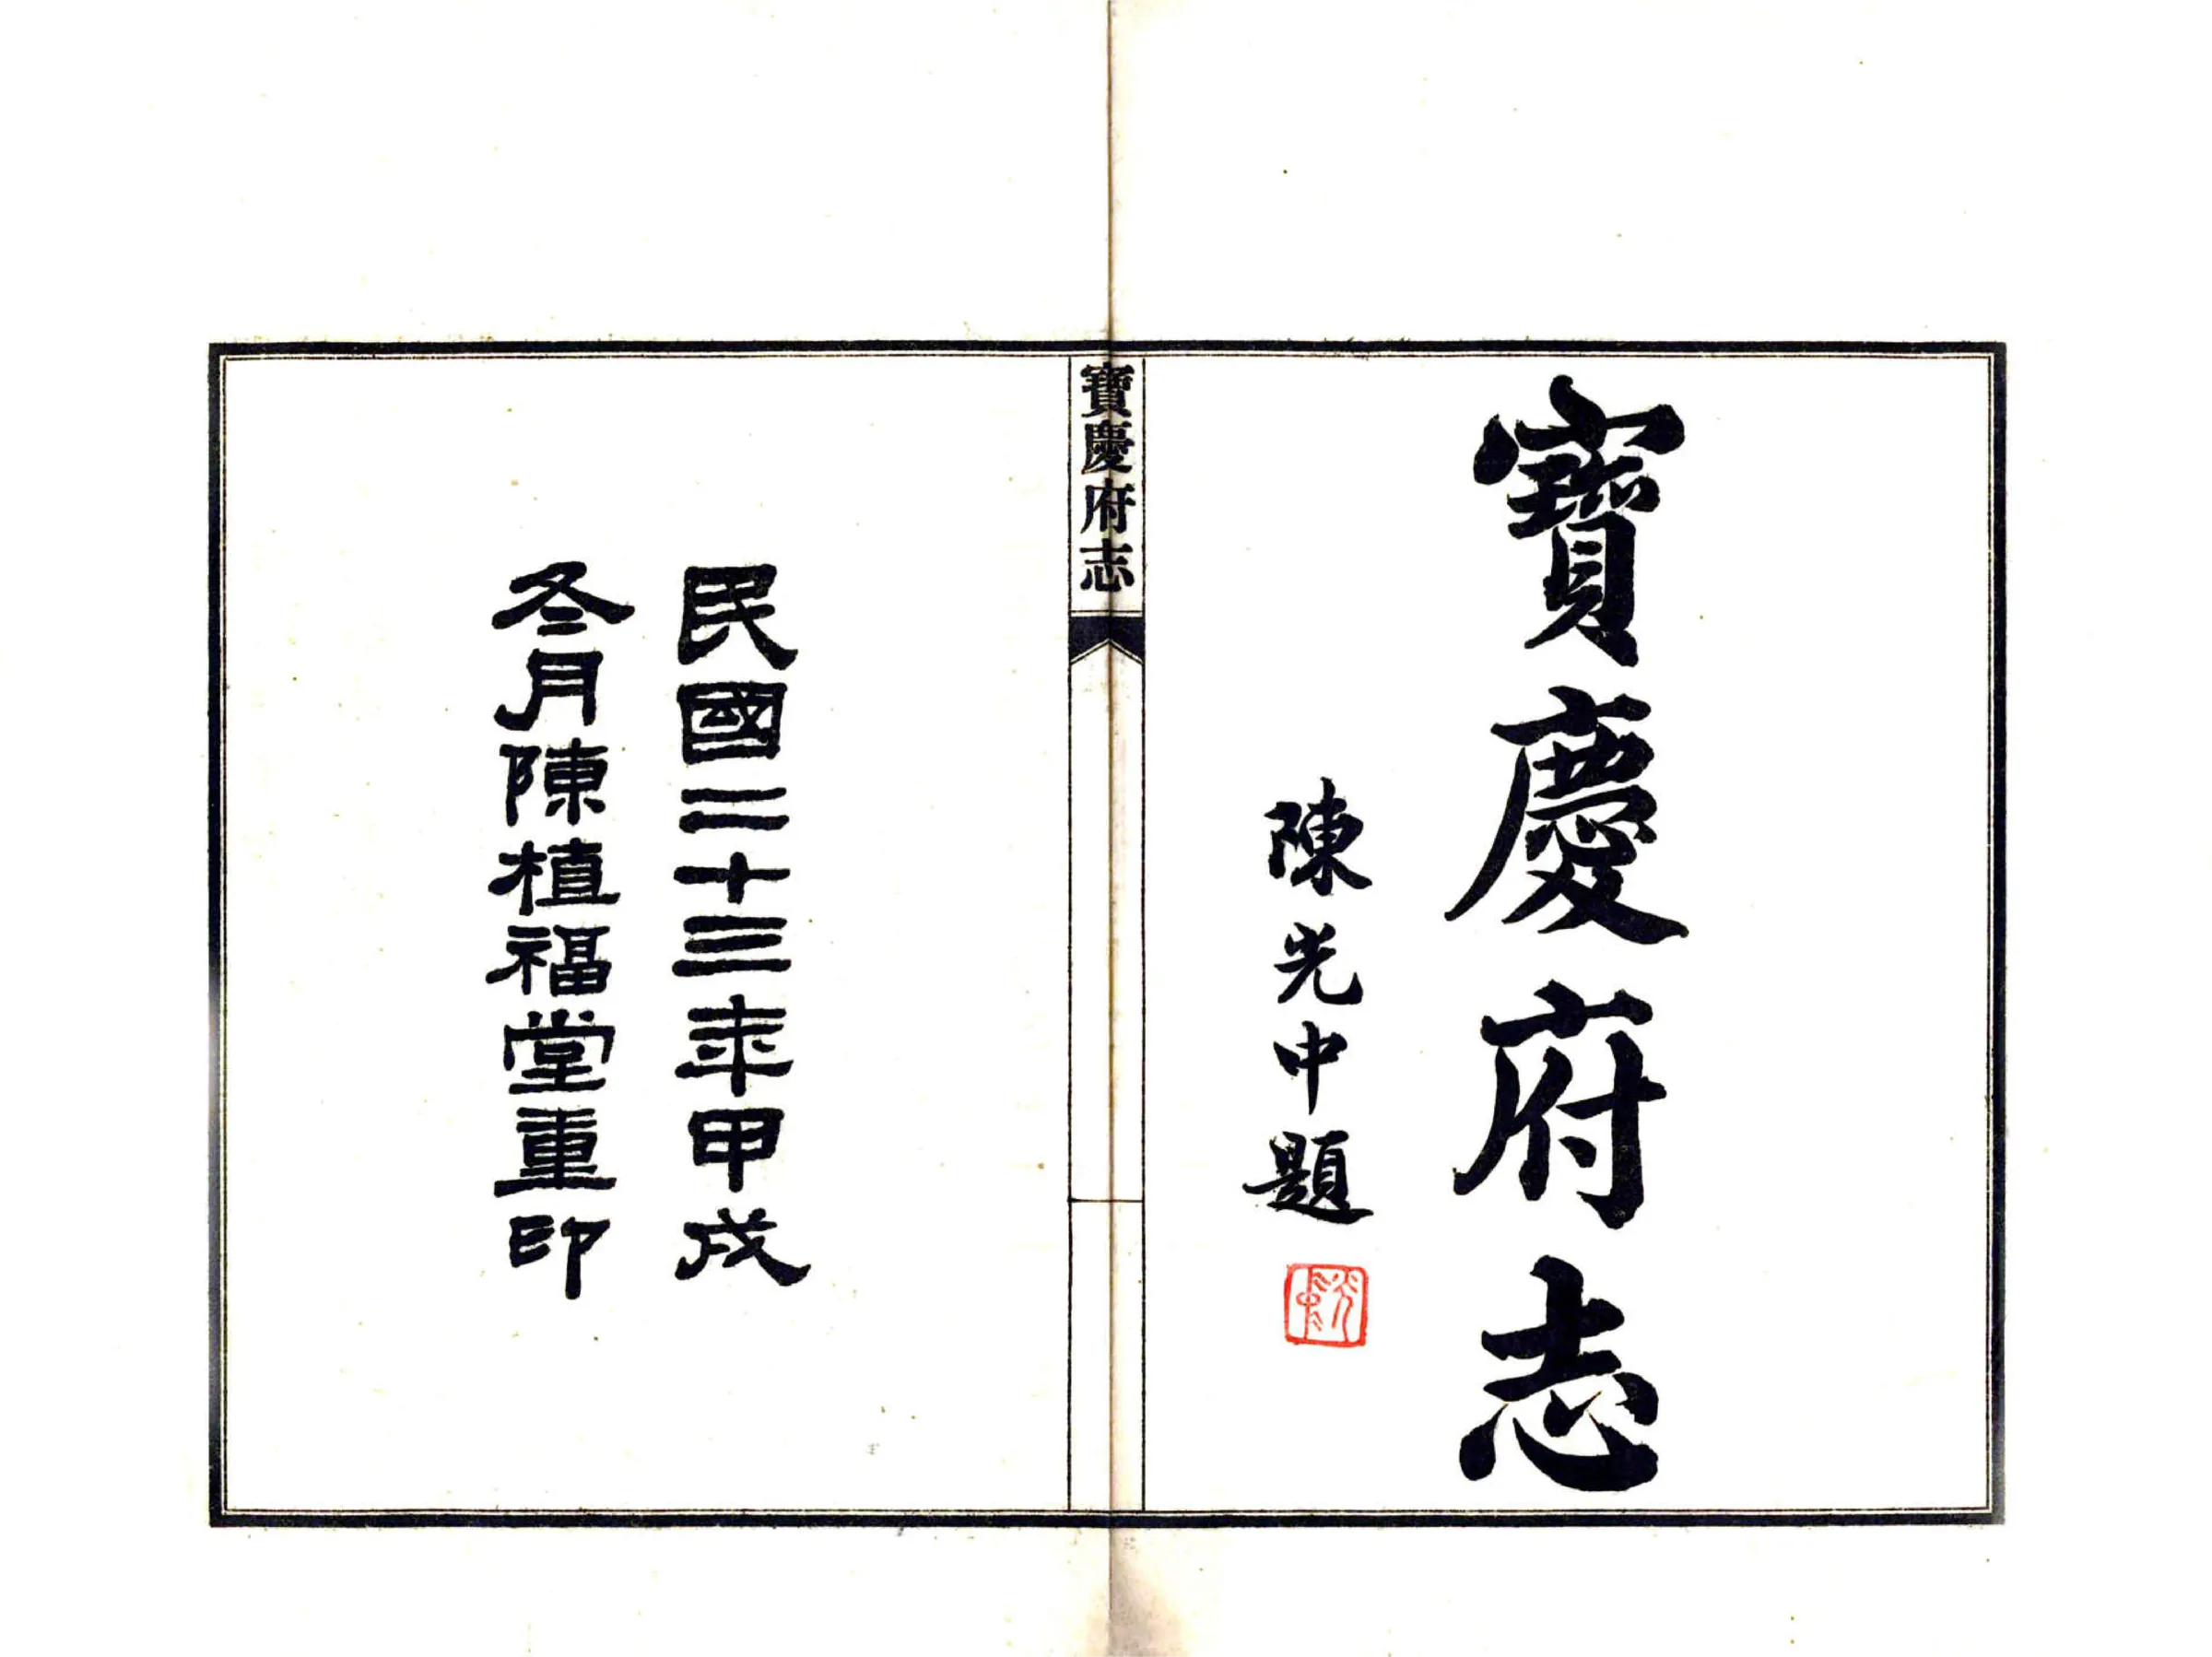 寶慶府志
陳光中題
寶慶府志
民國二十三年甲戌
冬月陳植福堂重印